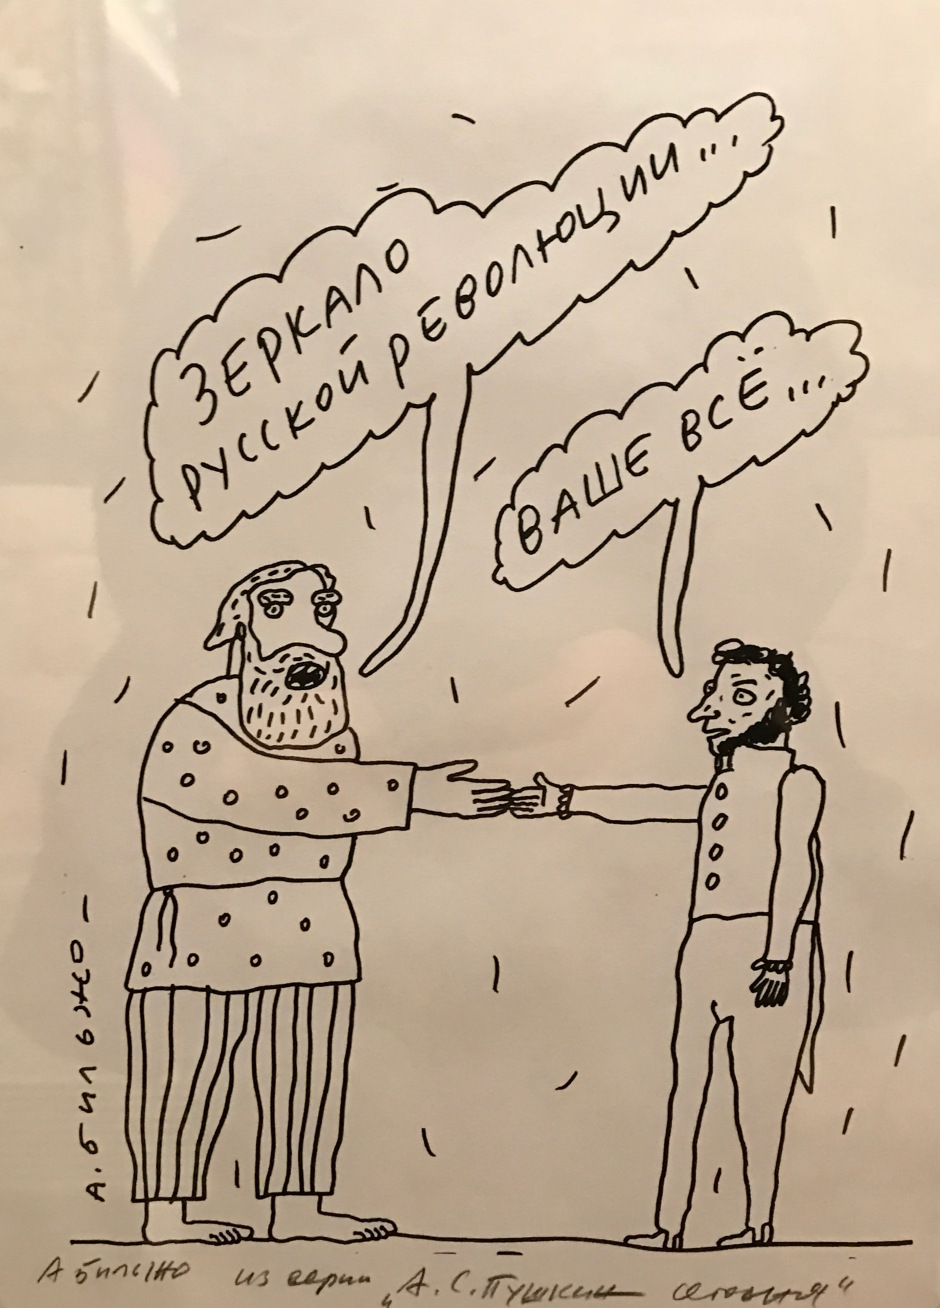 ЗЕРКАЛО
РУССКОЙ РЕВОЛЮЦИИ...
ВАШЕ ВСЁ...
А. бИЛЬЖО
А Бильжо из серии „А. С. Пушкин сегодня“